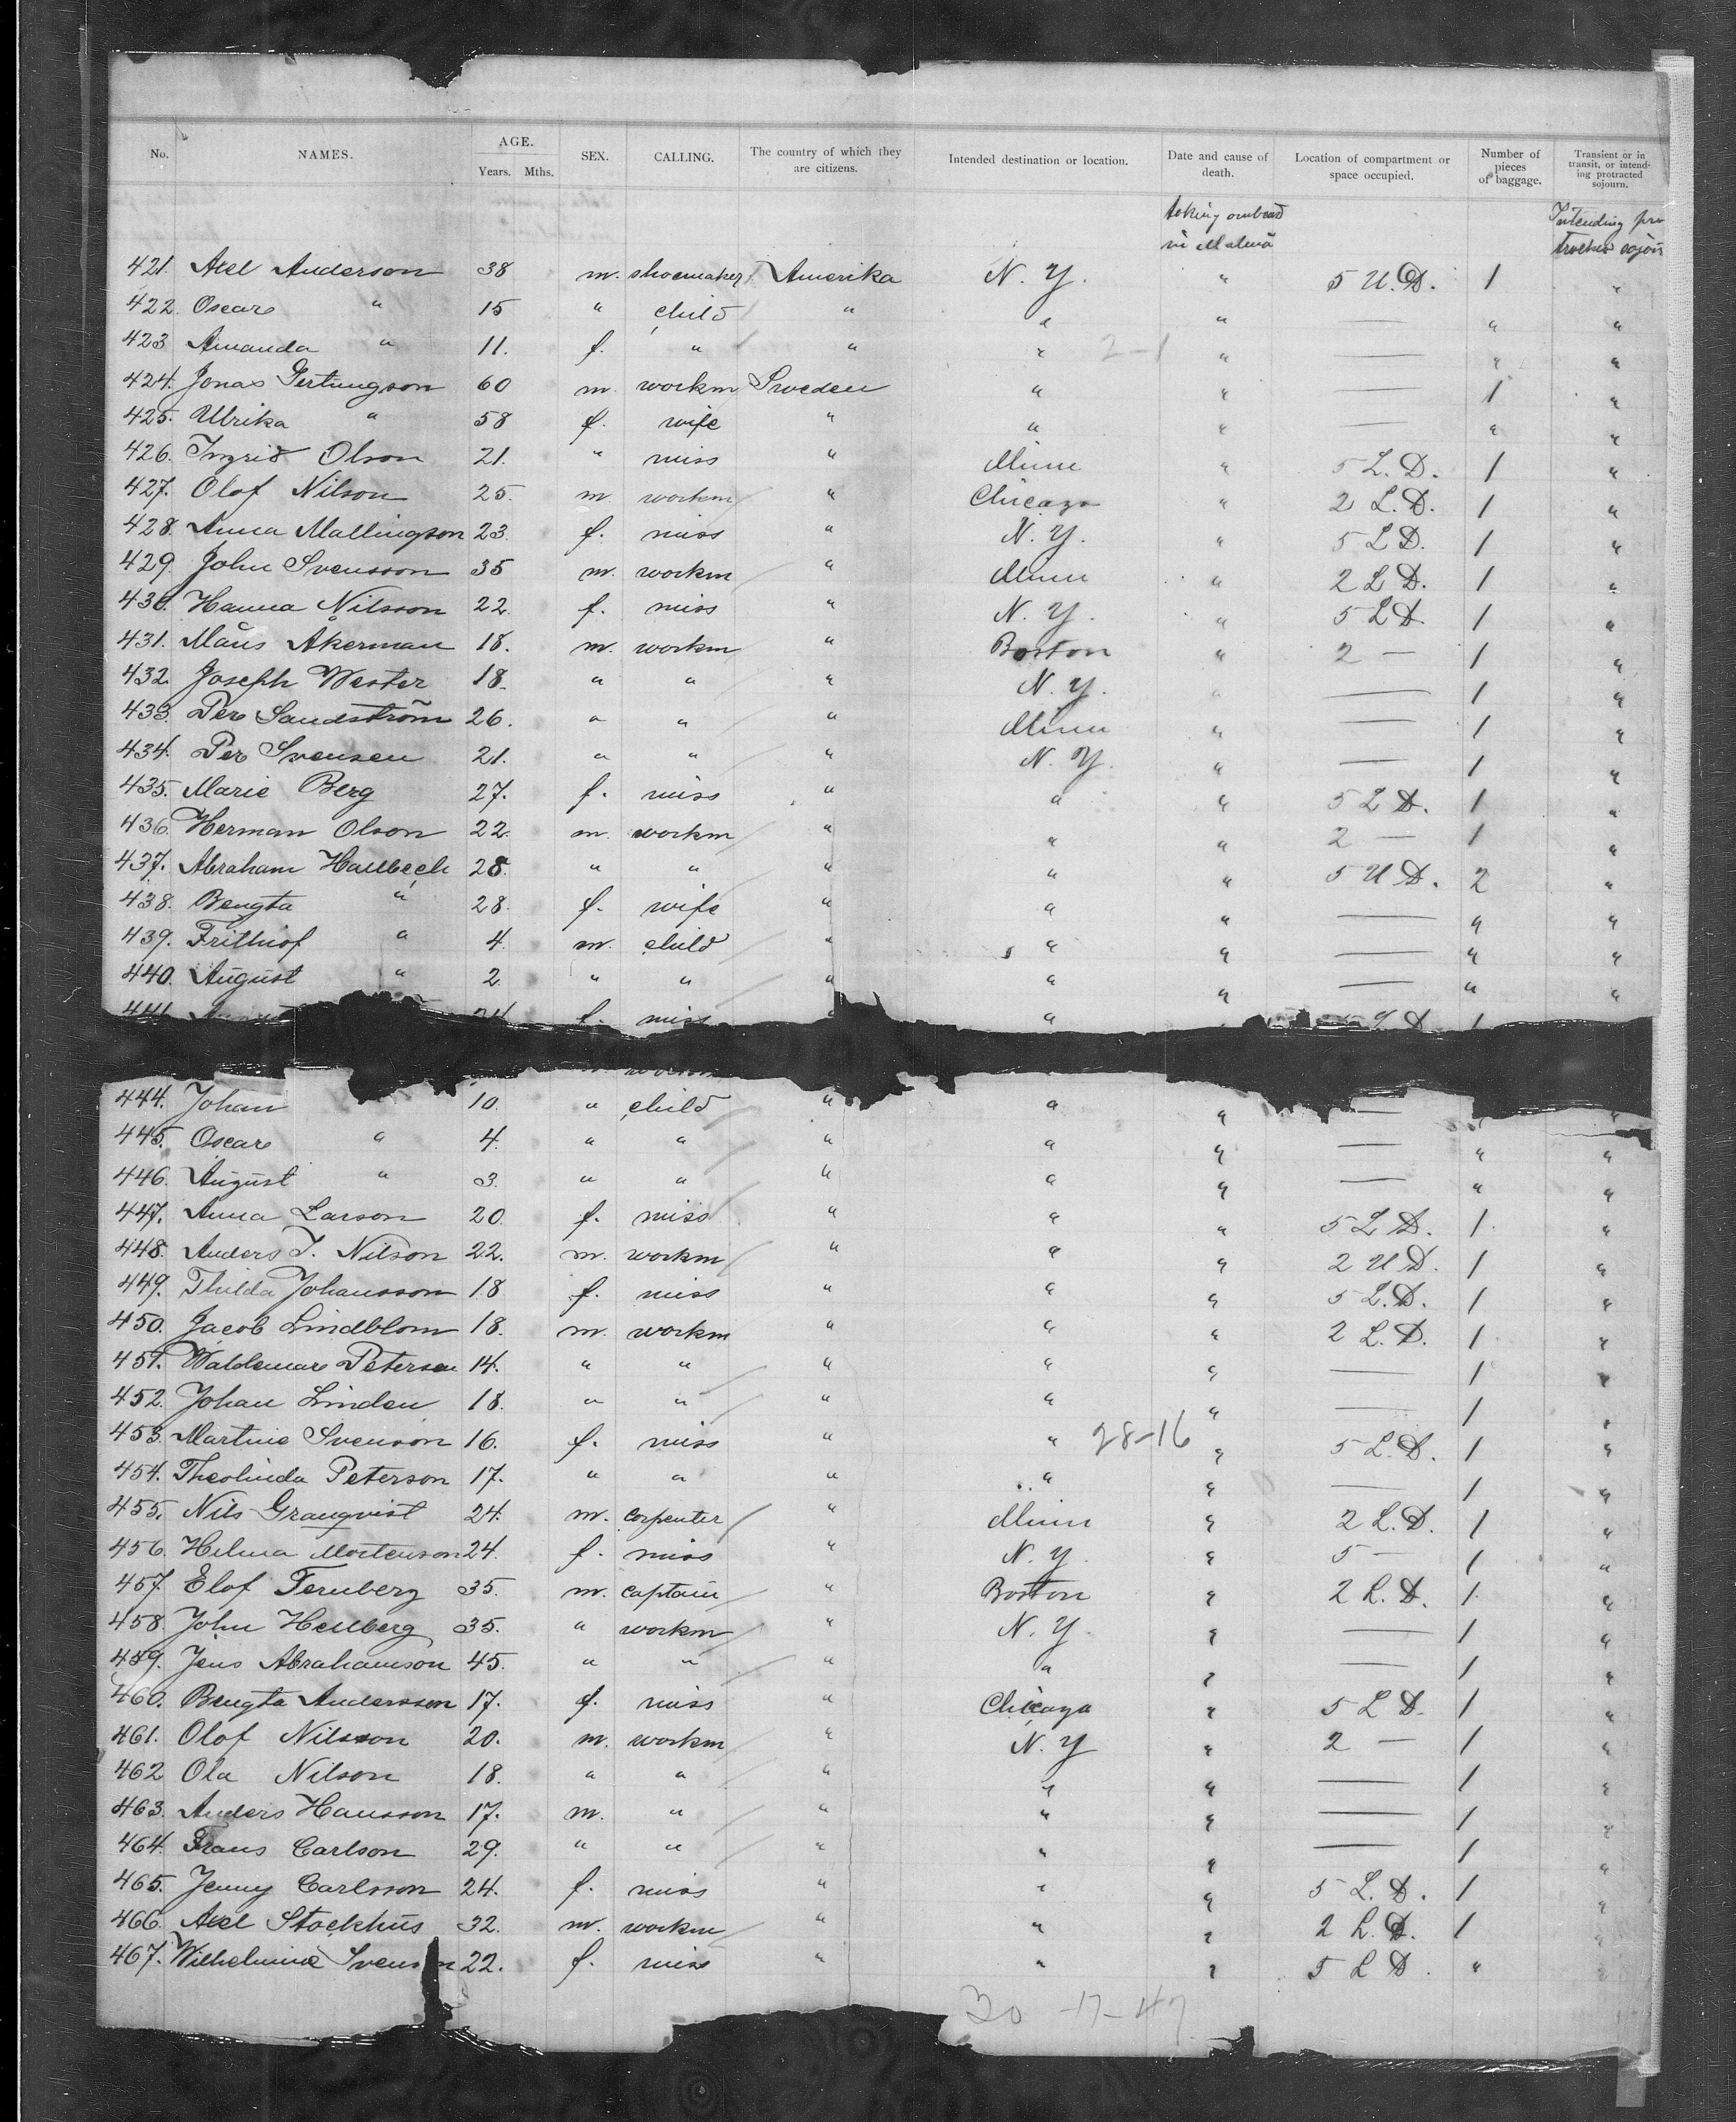 No. NAMES. AGE. Years. Mths. SEX. CALLING. The country of which they are citizens. Intended destination or location. Date and cause of death. Location of compartment or space occupied. Number of pieces of baggage. Transient or in transit, or intending protracted sojourn.
Intending pro
in Malmö
421. Axel Anderson 38 m. shoemaker Amerika N. Y. " 5 U.D. 1 "
422. Oscar " 15 " child " " " — " "
423 Amanda " 11. f. " " " 2-1 " — " "
424. Jonas 60 m. workm Sweden " " — 1 "
425. Ulrika " 58 f. wife " " " — " "
426. Ingrid Olson 21. " miss " Minn " 5 L. D. 1 "
427. Olof Nilson 25. m. workm " Chicago " 2 L. D. 1 "
428. Anna Mallingson 23. f. miss " N. Y. " 5 L D. 1 "
429. John Svensson 35 m. workm " Minn " 2 L D. 1 "
430. Hanna Nilsson 22. f. miss " N. Y. " 5 L D. 1 "
431. Måns Åkerman 18. m. workm " Boston " 2 — 1 "
432. Joseph Wester 18. " " " N. Y. " — 1 "
433. Per Sandström 26. " " " Minn " — 1 "
434. Per Svensen 21. " " " N. Y. " — 1 "
435. Marie Berg 27. f. miss " " " 5 L D. 1 "
436. Herman Olson 22. m. workm " " " 2 — 1 "
437. Abraham Hallbeck 28. " " " " " 5 U D. 2 "
438. Bengta " 28. f. wife " " " — " "
439. Frithiof " 4. m. child " " " — " "
440. August " 2. " " " " " — " "
441. 24 f. miss " " D. 1
444. Johan 10. " child " " " — "
445. Oscar " 4. " " " " " — " "
446. August " 3. " " " " " — " "
447. Anna Larson 20. f. miss " " " 5 L D. 1. "
448. Anders J. Nilson 22. m. workm " " " 2 U D. 1 "
449. Thilda Johansson 18 f. miss " " " 5 L. D. 1 "
450. Jacob Lindblom 18. m. workm " " " 2 L. D. 1 "
451. Waldemar Petersen 14. " " " " " — 1 "
452. Johan Linden 18. " " " " " — 1 "
453. Martine Svenson 16. f. miss " " 28-16 " 5 L. D. 1 "
454. Theolinda Peterson 17. " " " " " — 1 "
455. Nils Granqvist 24. m. corpenter " Minn " 2 L. D. 1 "
456. Hilma Mortenson 24. f. miss " N. Y. " 5 — 1 "
457. Elof Fernberg 35. m. captain " Boston " 2 L. D. 1. "
458. John Hellberg 35. " workm " N. Y. " — 1 "
459. Jens Abrahamson 45. " " " " " — 1 "
460. Bengta Anderssen 17. f. miss " Chicago " 5 L D. 1 "
461. Olof Nilsson 20. m. workm " N. Y " 2 — 1 "
462 Ola Nilson 18. " " " " " — 1 "
463. Anders Hansson 17. m. " " " " — 1 "
464. Frans Carlson 29. " " " " " — 1 "
465. Jenny Carlsson 24. f. miss " " " 5 L. D. 1 "
466. Axel Stockhus 32. m. workm " " " 2 L. D. 1 "
467. Wilhelmine 22. f. miss " " " 5 L D. " "
30 -17-47